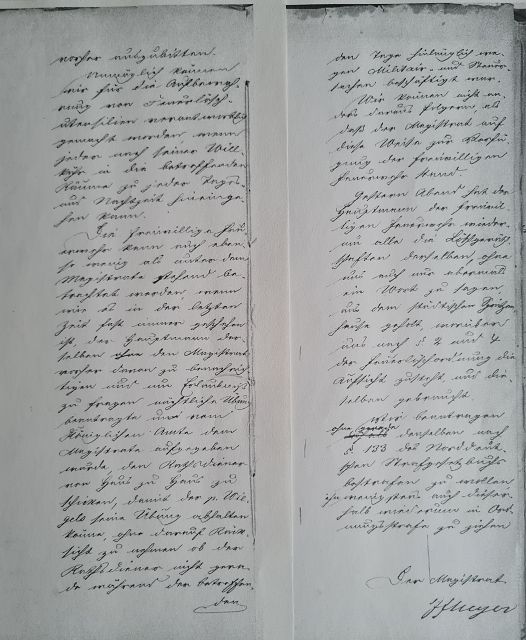 vorher auszubitten.
Unmöglich können
wir für die Aufbewah-
rung von Feuerlösch-
utensilien verantwortlich
gemacht werden wenn
jeder nach seiner Will-
kühr in die betreffenden
Räume zu jeder Tages-
und Nachtzeit hineinge-
hen kann.
Die freiwillige Feu-
erwehr kann auch eben
so wenig als unter dem
Magistrate stehend be-
trachtet werden, wenn
wie es in der letzten
Zeit fast immer geschehen
ist, der Hauptmann der-
selben ohne den Magistrat
vorher davon zu benachrich-
tigen und um Erlaubniß
zu fragen nächtliche Übung
beantragte und vom
Königlichen Amte dem
Magistrate aufgegeben
wurde, den Rathsdiener
von Haus zu Haus zu
schicken, damit der p. Wil-
seine Übung abhalten
könne, ohne darauf Rück-
sicht zu nehmen ob der
Rathsdiener nicht gera-
de während der betreffen-
den
den Tage hinlänglich we-
gen Militair- und Steuer-
sachen beschäftigt war.
Wir können nicht an-
ders daraus folgern als
daß der Magistrat auf
diese Weise zur Verfü-
gung der freiwilligen
Feuerwehr stand.
Gestern Abend hat der
Hauptmann der freiwil-
ligen Feuerwehr wieder-
um alle die Löschgeräth-
schaften derselben, ohne
uns auch nur abermals
ein Wort zu sagen,
aus dem städtischen Spritzen-
hause geholt, worüber
uns nach § 2 und 4
der Feuerlöschordnung die
Aufsicht zusteht, und die-
selben gebraucht.
Wir beantragen
ohne
denselben nach
§. 133 des Norddeut-
schen Strafgesetzbuchs
bestrafen zu wollen
wenigstens auch dieser-
halb wiederum in Ord-
nungsstrafe zu ziehen
Der Magistrat
Meyer